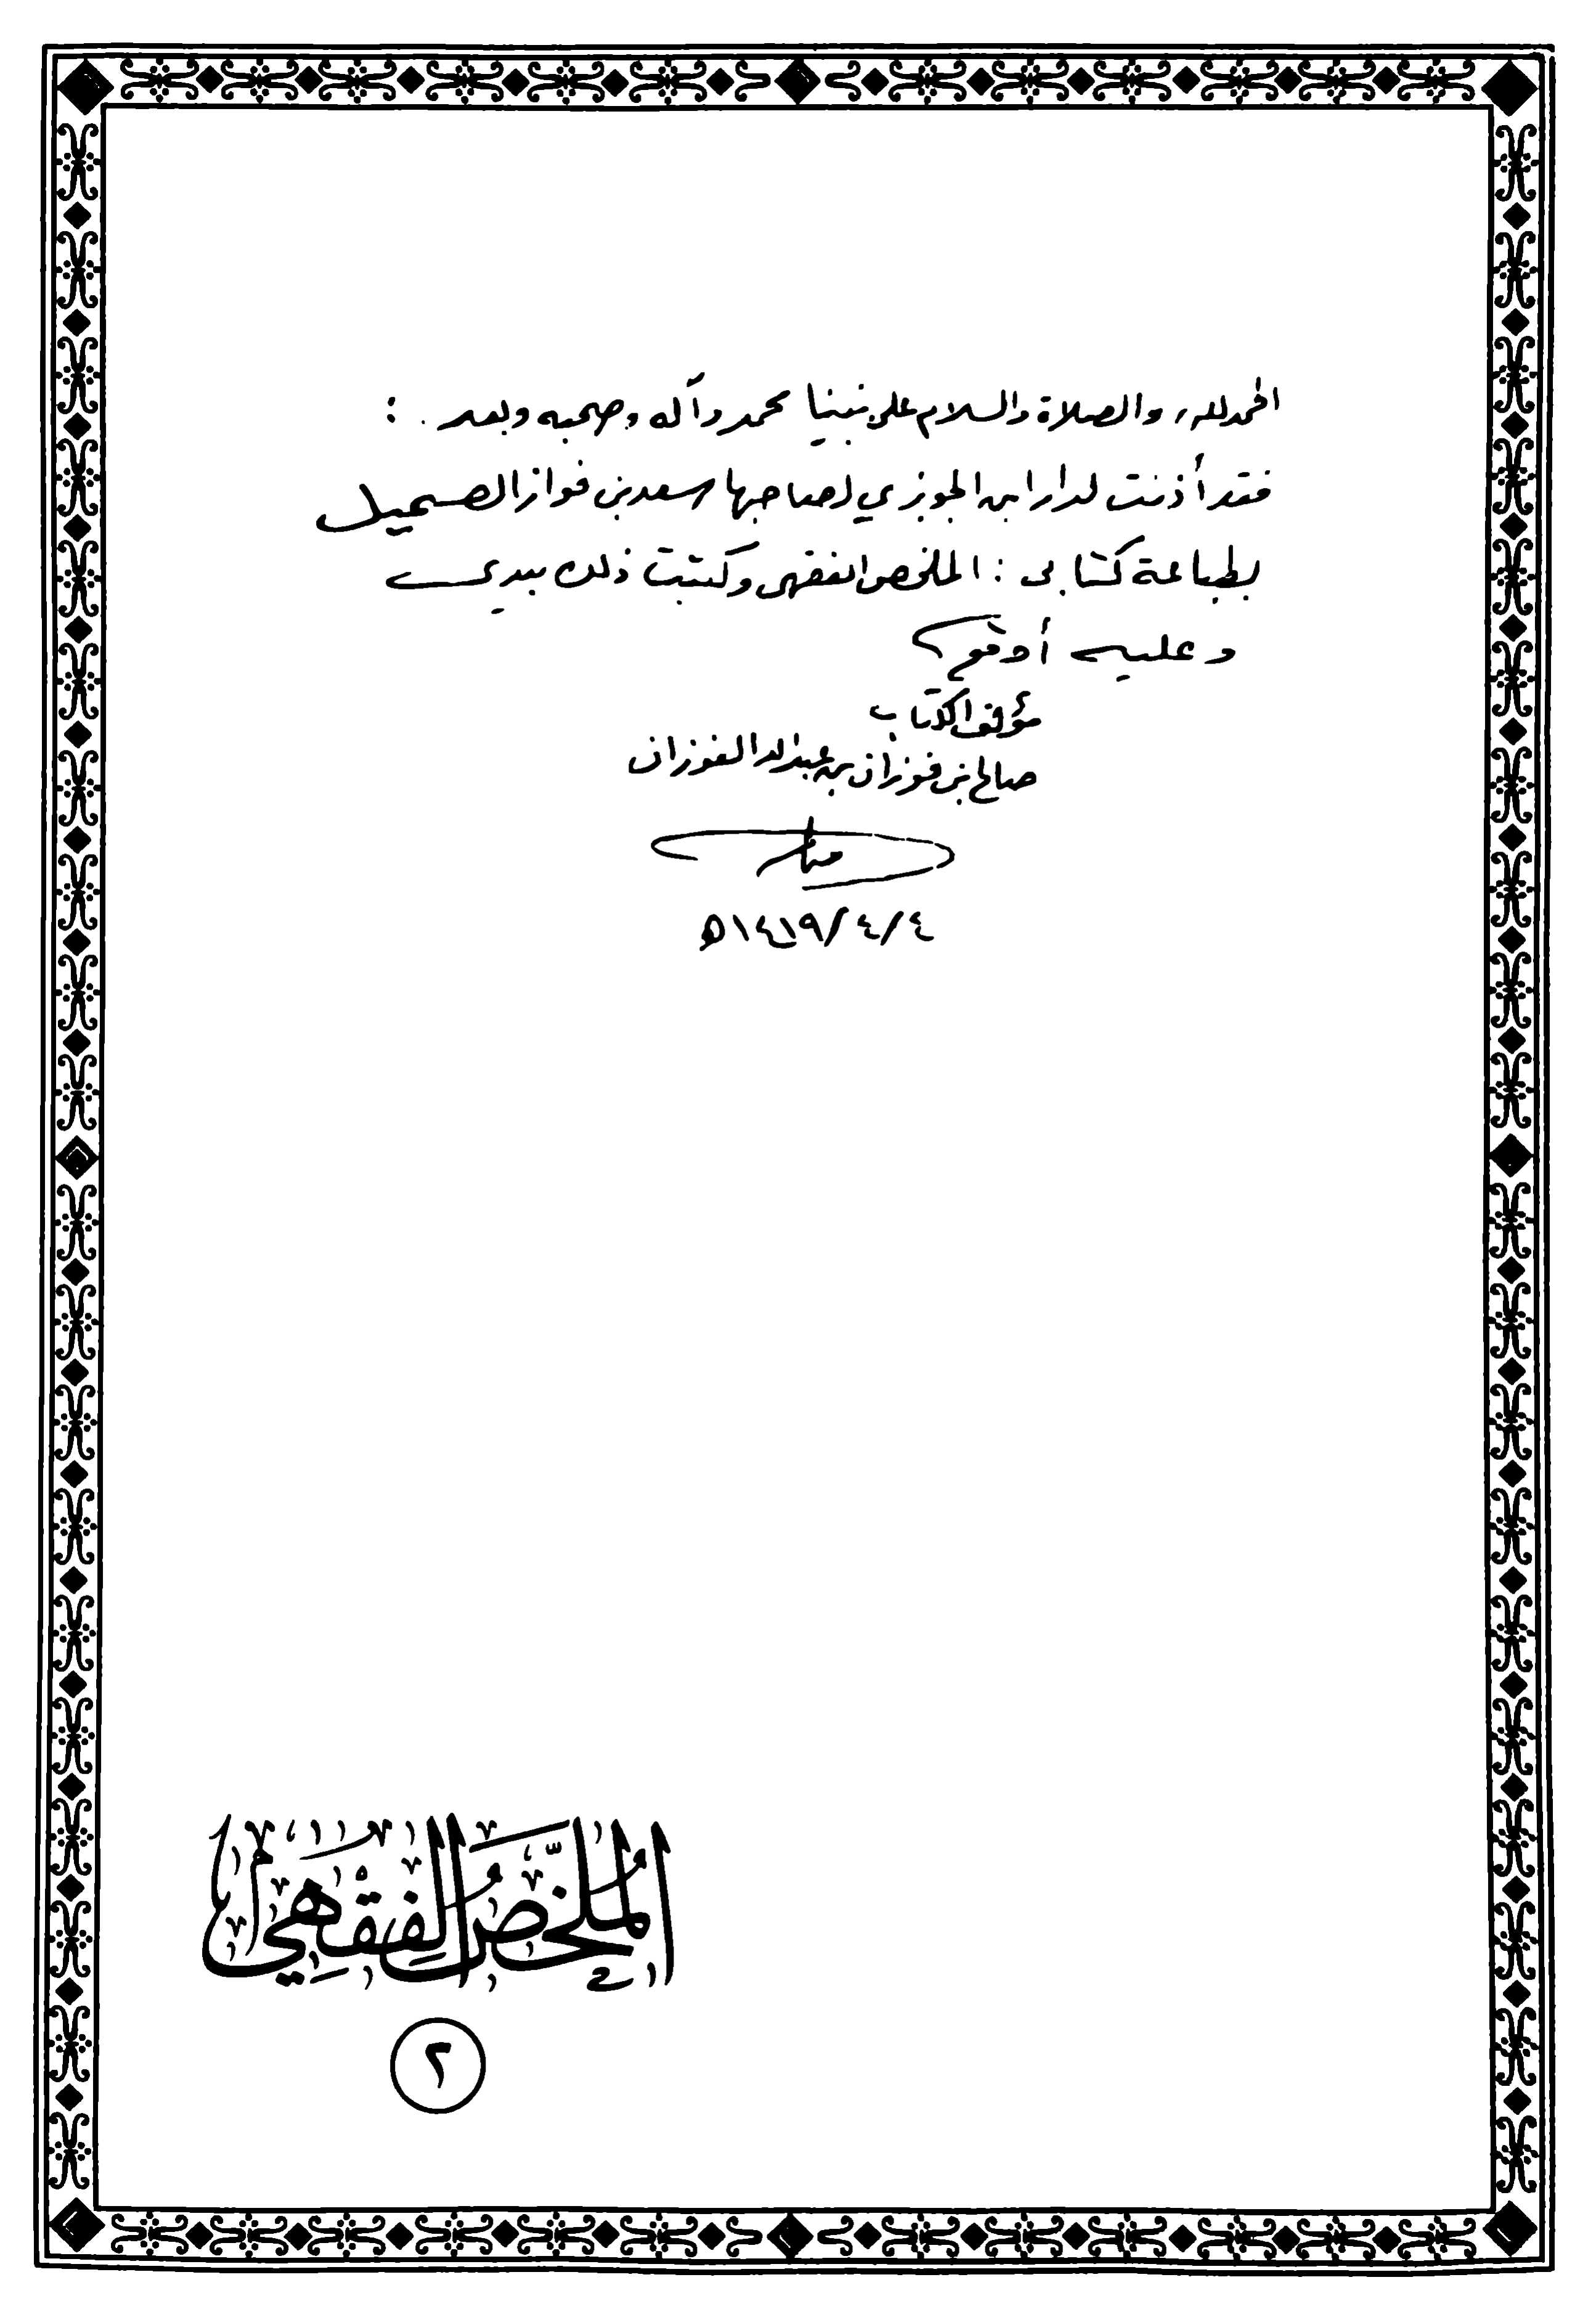 الحمد لله، والصلاة والسلام على نبينا محمد وآله وصحبه وبعد :
فقد أذنت لدار ابن الجوزي لصاحبها سعد بن فواز الصميل
بطباعة كتابي : الملخص الفقهي وكتبت ذلك بيدي
وعليه أوقع
مؤلف الكتاب
صالح بن فوزان بن عبد الله الفوزان
٤/٤/١٤١٩ه
المُلخَّصُ الفِقْهِي
٢